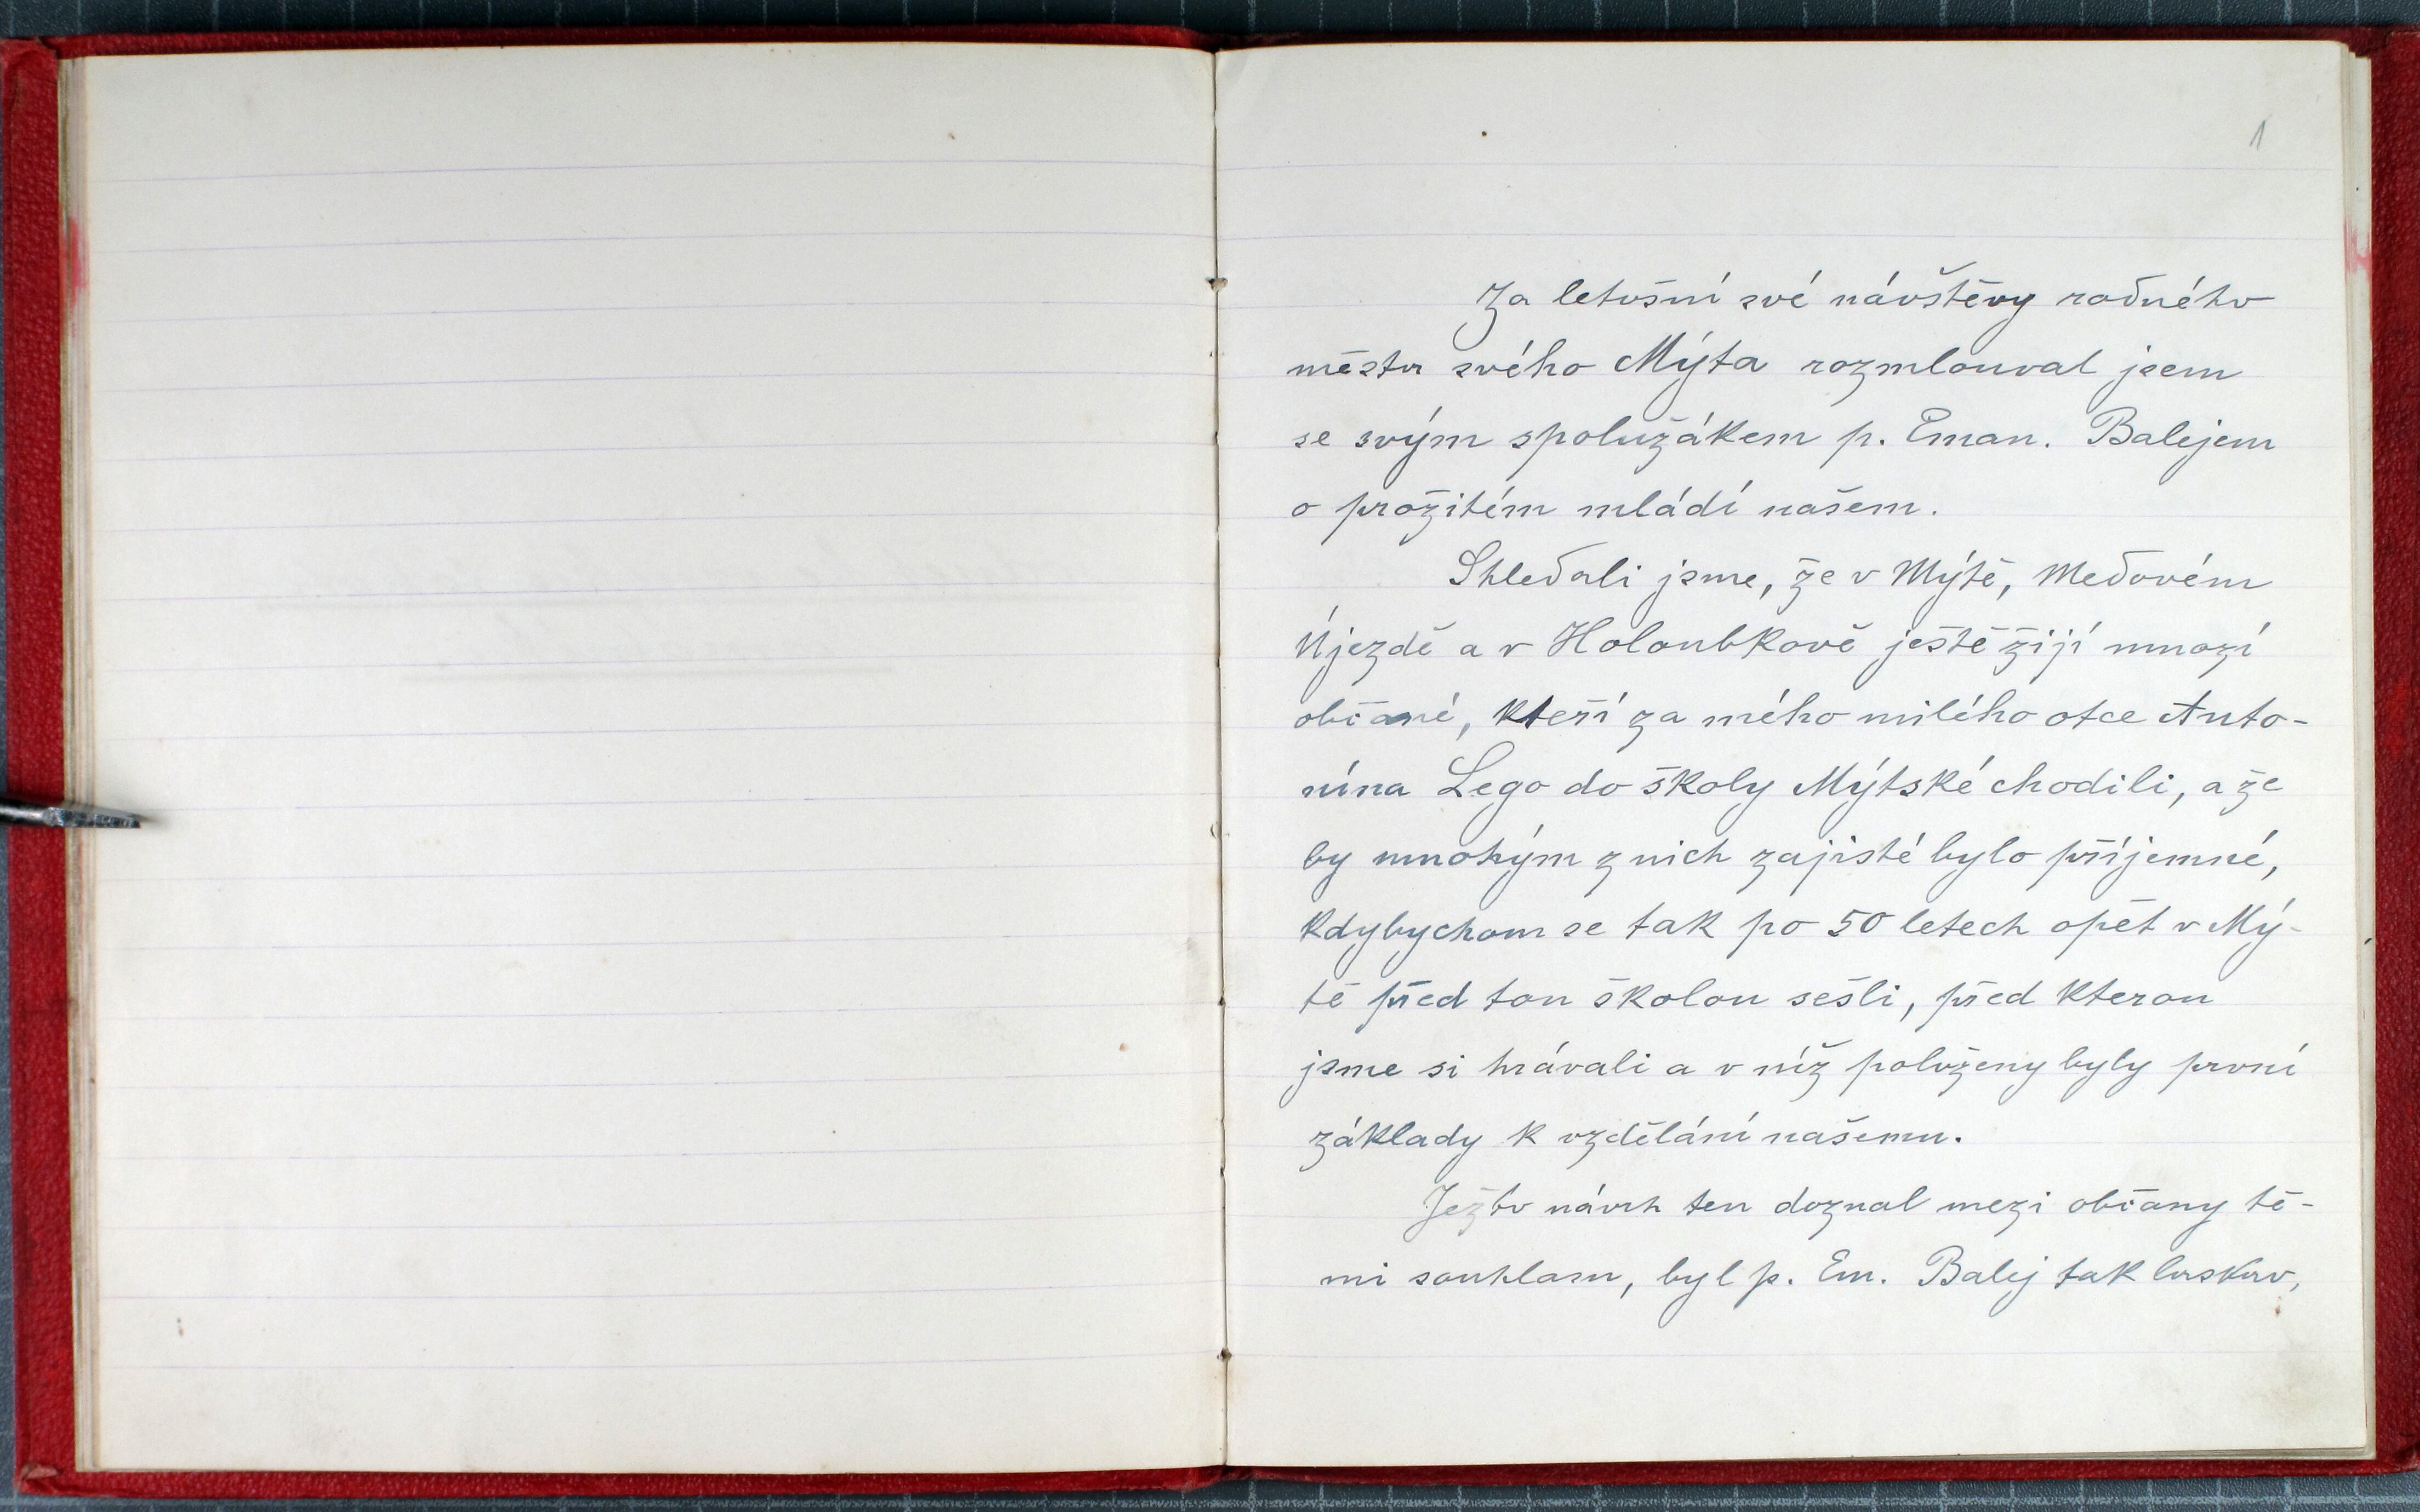 1
Za letošní své návštěvy rodného
města svého Mýta rozmlouval jsem
se svým spolužákem p. Eman. Balejem
o prožitém mládí našem.
Shledali jsme, že v Mýtě, Medovém
Újezdě a v Holoubkově ještě žijí mnozí
občané, kteří za mého milého otce Anto-
nína Lego do školy Mýtské chodili, a že
by mnohým z nich zajisté bylo příjemné,
kdybychom se tak po 50 letech opět v Mý-
tě před tou školou sešli, před kterou
jsme si hrávali a v níž položeny byly první
základy k vzdělání našemu.
Ježto návrh ten doznal mezi občany tě-
mi souhlasu, byl p. Em. Balej tak laskav,